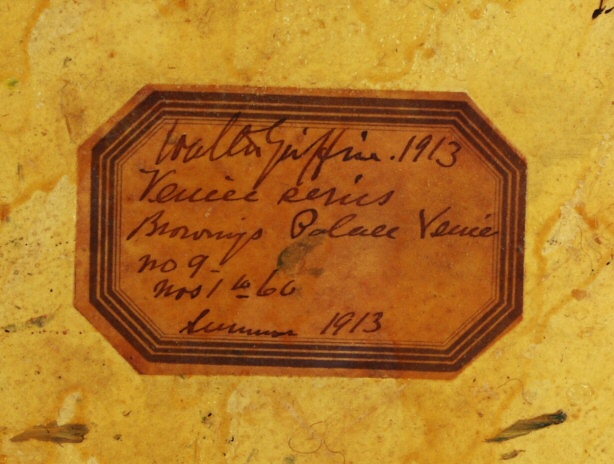 Walter Griffin. 1913
Venice series
Brownings Palace Venice
no 9-
nos 1 to 60
Summer 1913